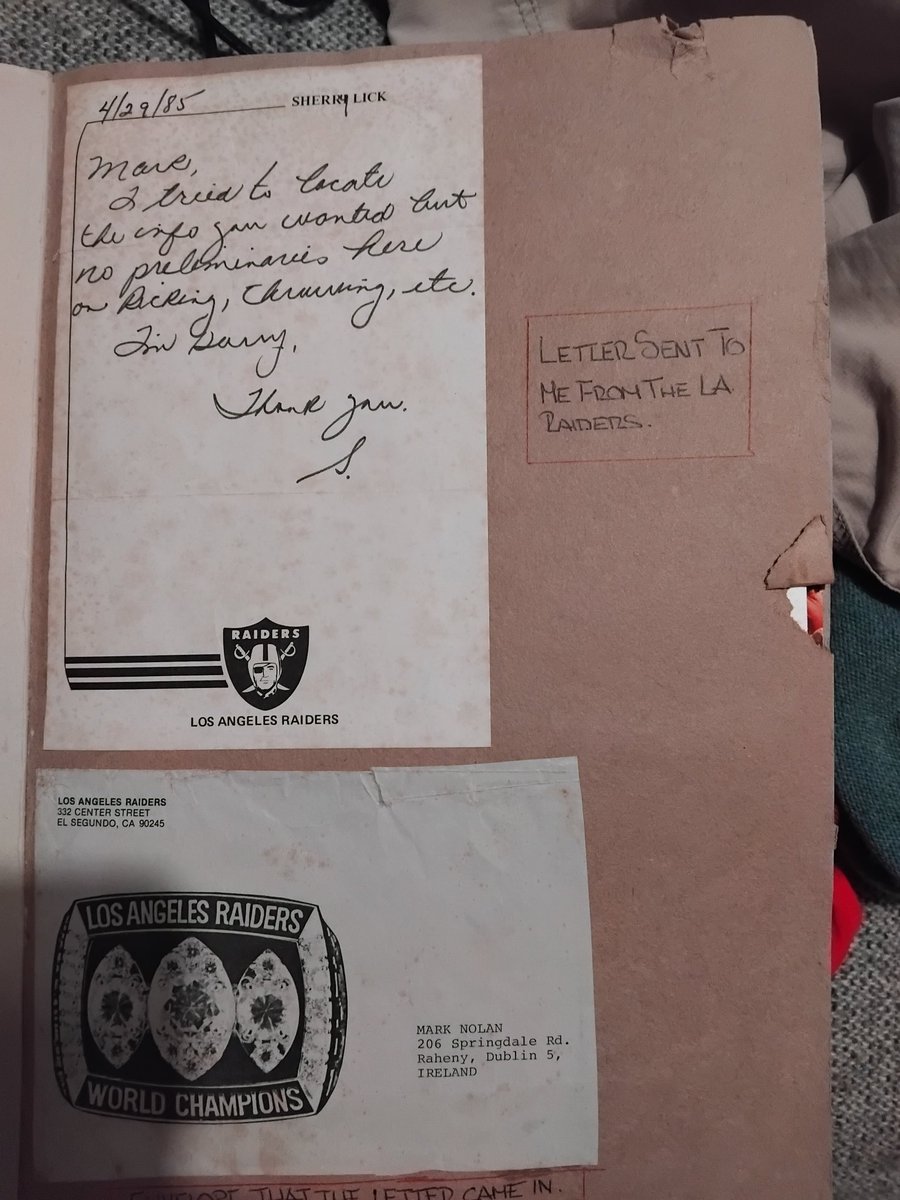 4/29/85
SHERRY LICK
Mark,
I tried to locate
the info you wanted but
no preliminaries here
on kicking, throwing, etc.
I'm sorry.
Thank you.
S.
RAIDERS
LOS ANGELES RAIDERS
LETTER SENT TO
ME FROM THE LA
RAIDERS.
LOS ANGELES RAIDERS
332 CENTER STREET
EL SEGUNDO, CA 90245
LOS ANGELES RAIDERS
WORLD CHAMPIONS
MARK NOLAN
206 Springdale Rd.
Raheny, Dublin 5,
IRELAND
ENVELOPE THAT THE LETTER CAME IN.